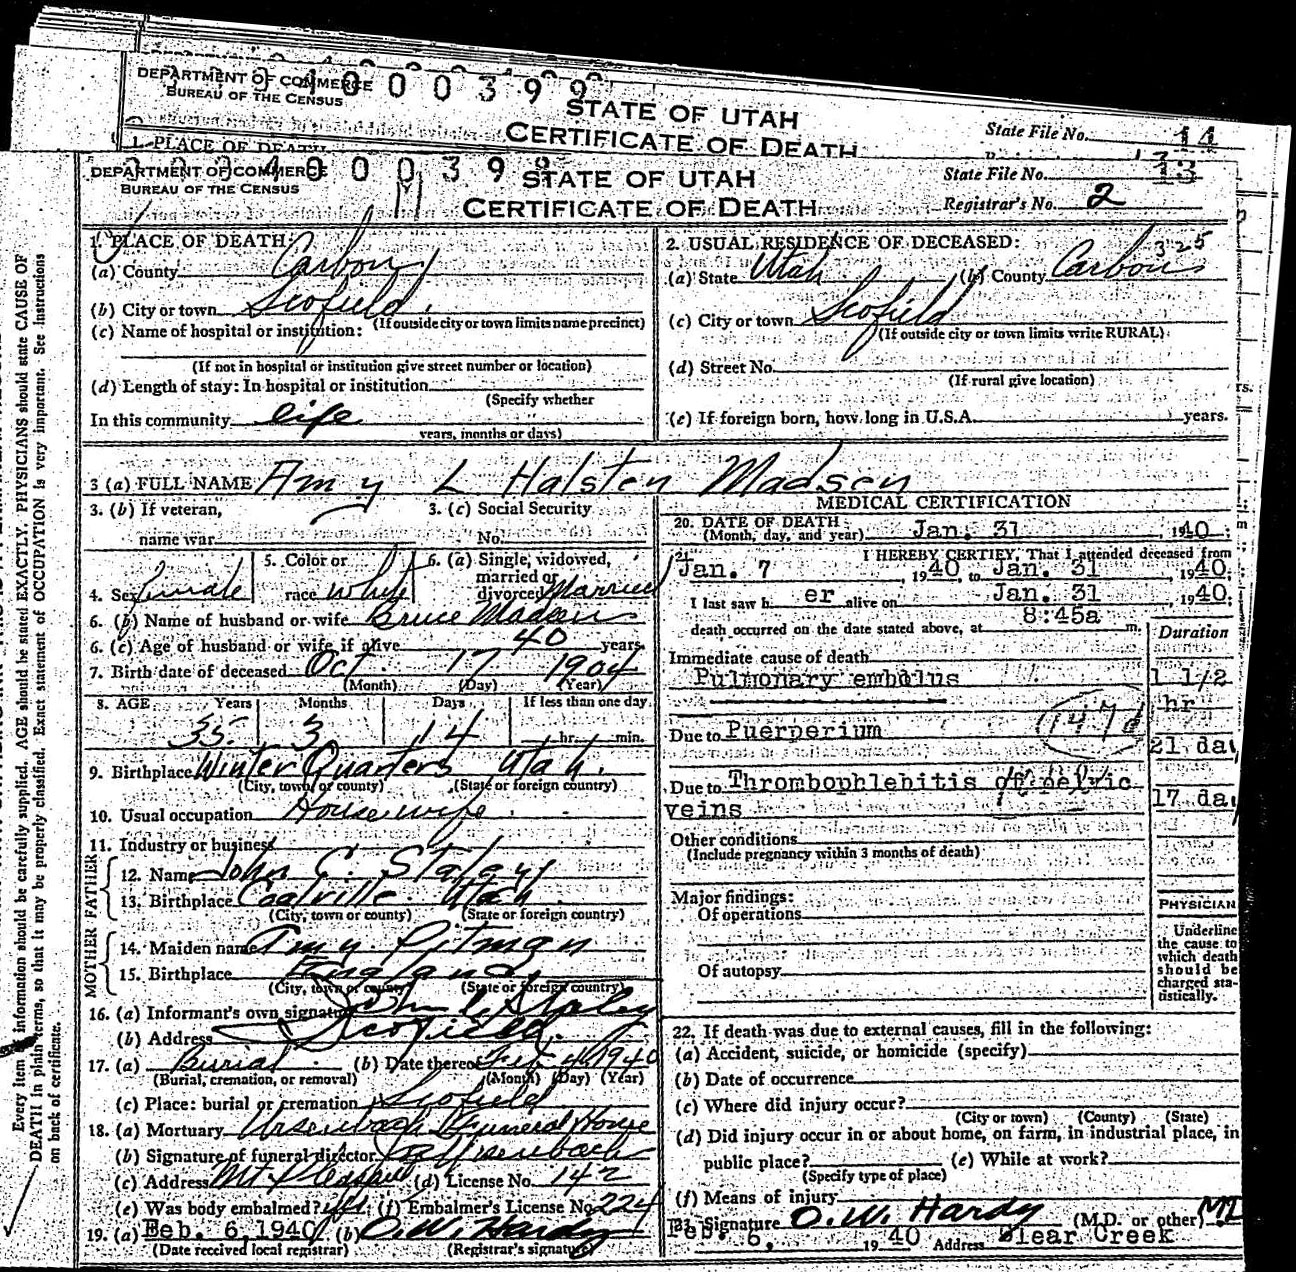 DEPARTMENT OF COMMERCE
BUREAU OF THE CENSUS
STATE OF UTAH
CERTIFICATE OF DEATH
State File No. 14
1. PLACE OF DEATH
DEPARTMENT OF COMMERCE
BUREAU OF THE CENSUS
STATE OF UTAH
CERTIFICATE OF DEATH
State File No. 13
Registrar's No. 2
Every item of information should be carefully supplied. AGE should be stated EXACTLY. PHYSICIANS should state CAUSE OF
DEATH in plain terms, so that it may be properly classified. Exact statement of OCCUPATION is very important. See Instructions
on back of certificate.
1. PLACE OF DEATH:
(a) County Carbon
(b) City or town Scofield
(If outside city or town limits name precinct)
(c) Name of hospital or institution:
(If not in hospital or institution give street number or location)
(d) Length of stay: In hospital or institution
(Specify whether
In this community life
years, months or days)
2. USUAL RESIDENCE OF DECEASED:
325
(a) State Utah (b) County Carbon
(c) City or town Scofield
(If outside city or town limits write RURAL)
(d) Street No.
(If rural give location)
(e) If foreign born, how long in U.S.A. years.
3 (a) FULL NAME Amy L Halsten Madsen
3. (b) If veteran,
name war
3. (c) Social Security
No.
4. Sex female
5. Color or
race white
6. (a) Single, widowed,
married or
divorced Married
6. (b) Name of husband or wife Bruce Madsen
6. (c) Age of husband or wife if alive 40 years
7. Birth date of deceased Oct. 17 1904
(Month) (Day) (Year)
8. AGE Years Months Days If less than one day
35 3 14 hr. min.
9. Birthplace Winter Quarters Utah.
(City, town or county) (State or foreign country)
10. Usual occupation Housewife
11. Industry or business
FATHER
12. Name John C. Staley
13. Birthplace Coalville Utah
(City, town or county) (State or foreign country)
MOTHER
14. Maiden name Amy Pitman
15. Birthplace England
(City, town or county) (State or foreign country)
16. (a) Informant's own signature John C. Staley
(b) Address Scofield.
17. (a) Burial (b) Date thereof Feb. 4 1940
(Burial, cremation, or removal) (Month) (Day) (Year)
(c) Place: burial or cremation Scofield
18. (a) Mortuary Ursenbach Funeral Home
(b) Signature of funeral director Ursenbach
(c) Address Mt Pleasant (d) License No. 142
(e) Was body embalmed? yes (f) Embalmer's License No. 224
19. (a) Feb. 6, 1940 (b) O.W. Hardy
(Date received local registrar) (Registrar's signature)
MEDICAL CERTIFICATION
20. DATE OF DEATH
(Month, day, and year) Jan. 31 1940
21. I HEREBY CERTIFY, That I attended deceased from
Jan. 7, 1940, to Jan. 31, 1940.
I last saw h er alive on Jan. 31, 1940.
death occurred on the date stated above, at 8:45a m.
Duration
Immediate cause of death
Pulmonary embolus 1 1/2
hr
Due to Puerperium 147d
21 da
Due to Thrombophlebitis of pelvic
veins 17 da
Other conditions
(Include pregnancy within 3 months of death)
Major findings:
Of operations
Of autopsy
PHYSICIAN
Underline
the cause to
which death
should be
charged sta-
tistically.
22. If death was due to external causes, fill in the following:
(a) Accident, suicide, or homicide (specify)
(b) Date of occurrence
(c) Where did injury occur?
(City or town) (County) (State)
(d) Did injury occur in or about home, on farm, in industrial place, in
public place? (e) While at work?
(Specify type of place)
(f) Means of injury
23. Signature O.W. Hardy (M.D. or other) MD
Feb. 6, 1940 Address Clear Creek